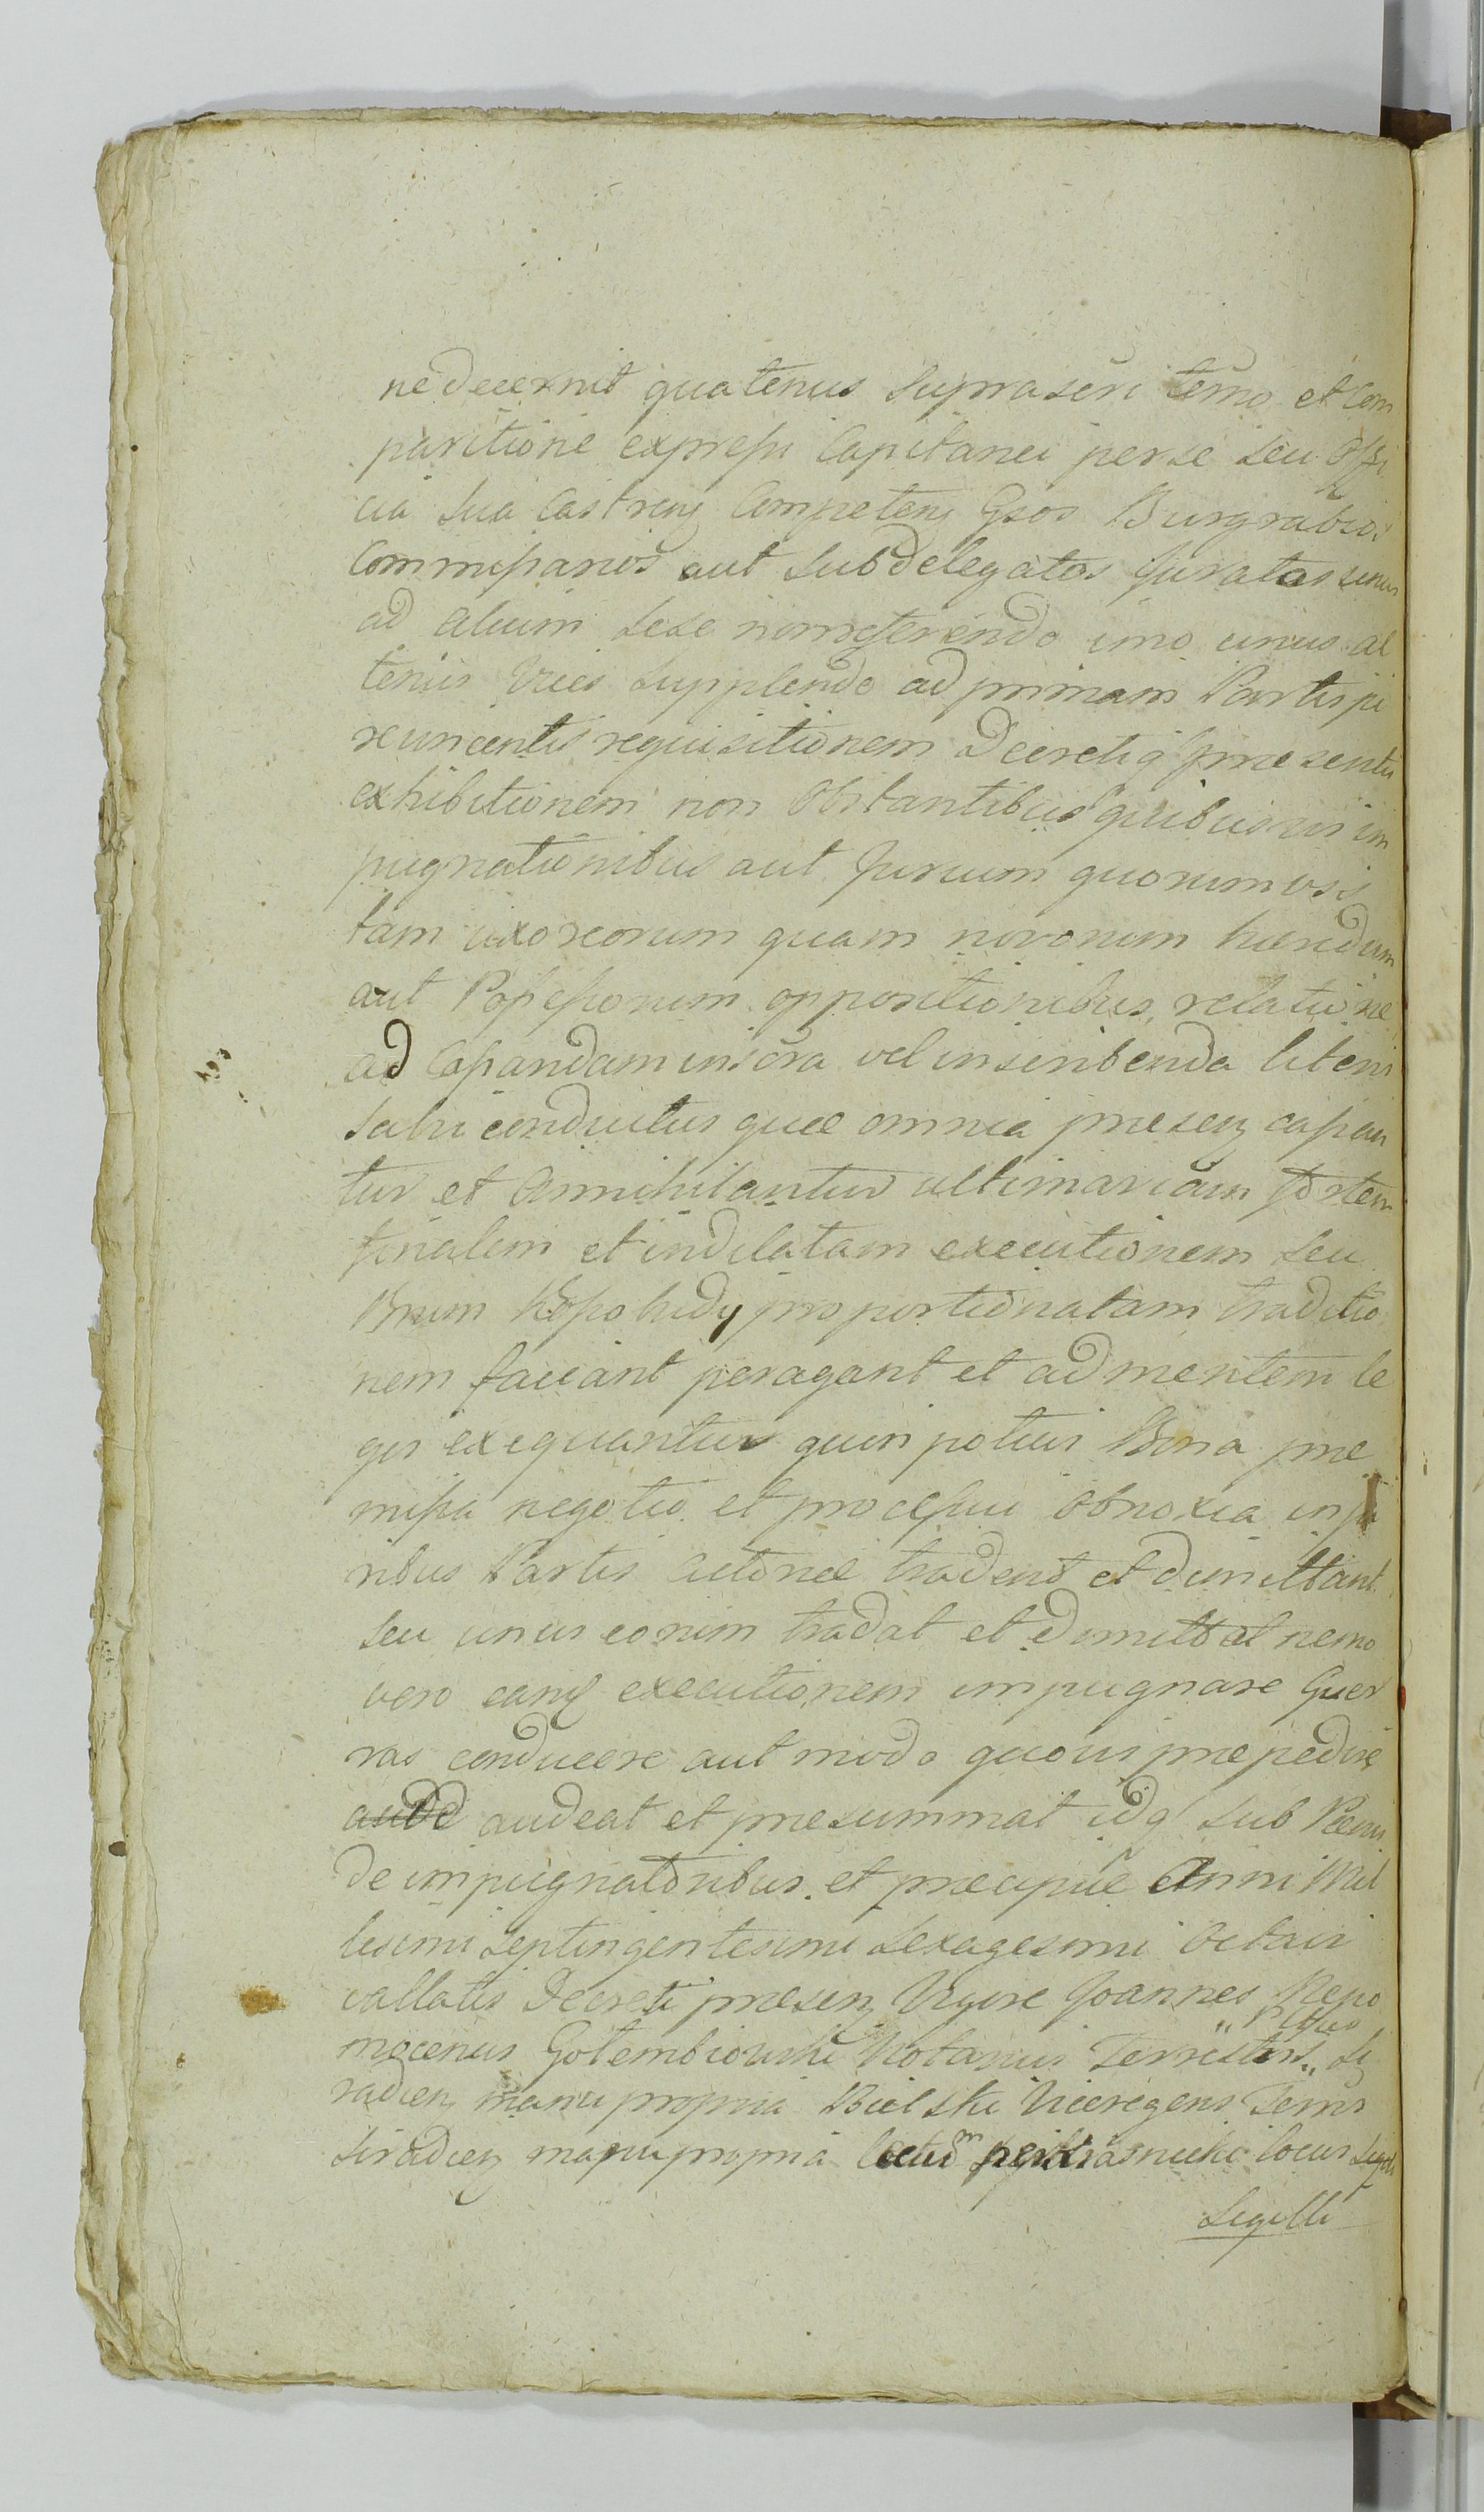 ne decernit quatenus Suprascri termo et Com
paritione expressi Capitanei per se seu Offi
cia sua Castrens Competens Gsos Burgrabios
Commissarios aut Subdelegatos Juratos unus
ad alium sese non referendo imo unius al
terius Vices Supplendo ad primam Partis ju
re vincentis requisitionem Decretiq praesentis
exhibitionem non Obstantibus quibusvis im
pugnationibus aut Jurium quorumvis
tam uxoreorum quam novorum haeredum
aut Possessorum oppositionibus, relatione
ad Cassandam inscra vel inscribenda literis
salvi conductus quae omnia presenz cassan
tur et Annihilantur ultimariam fortem
finalem et indilatam executionem seu
Bnrum proportionatam traditio
nem faciant peragant et ad mentem le
gis exequantur quin potius Bona prae
missa negotio et processui obnoxia in
ribus Partis Actoreae tradent et dimittant
seu unus eorum tradat et dimittat nemo
vero eanq executionem impugnare Guer
ras conducere aut modo quovis praepedire
aude audeat et praesummat idq sub Poenis
de impugnatoribus et praecipue Anni Mil
lesimi Septingentesimi Sexagesimi Octavi
vallatis Decreti presenz Vigore Joannes Nepo
mocenus Gołembiowski Notarius Terrestris Si
radienz manu propria Bielski Viceregens Terris
Siradienz manu propria locus Sigili
Sigilli